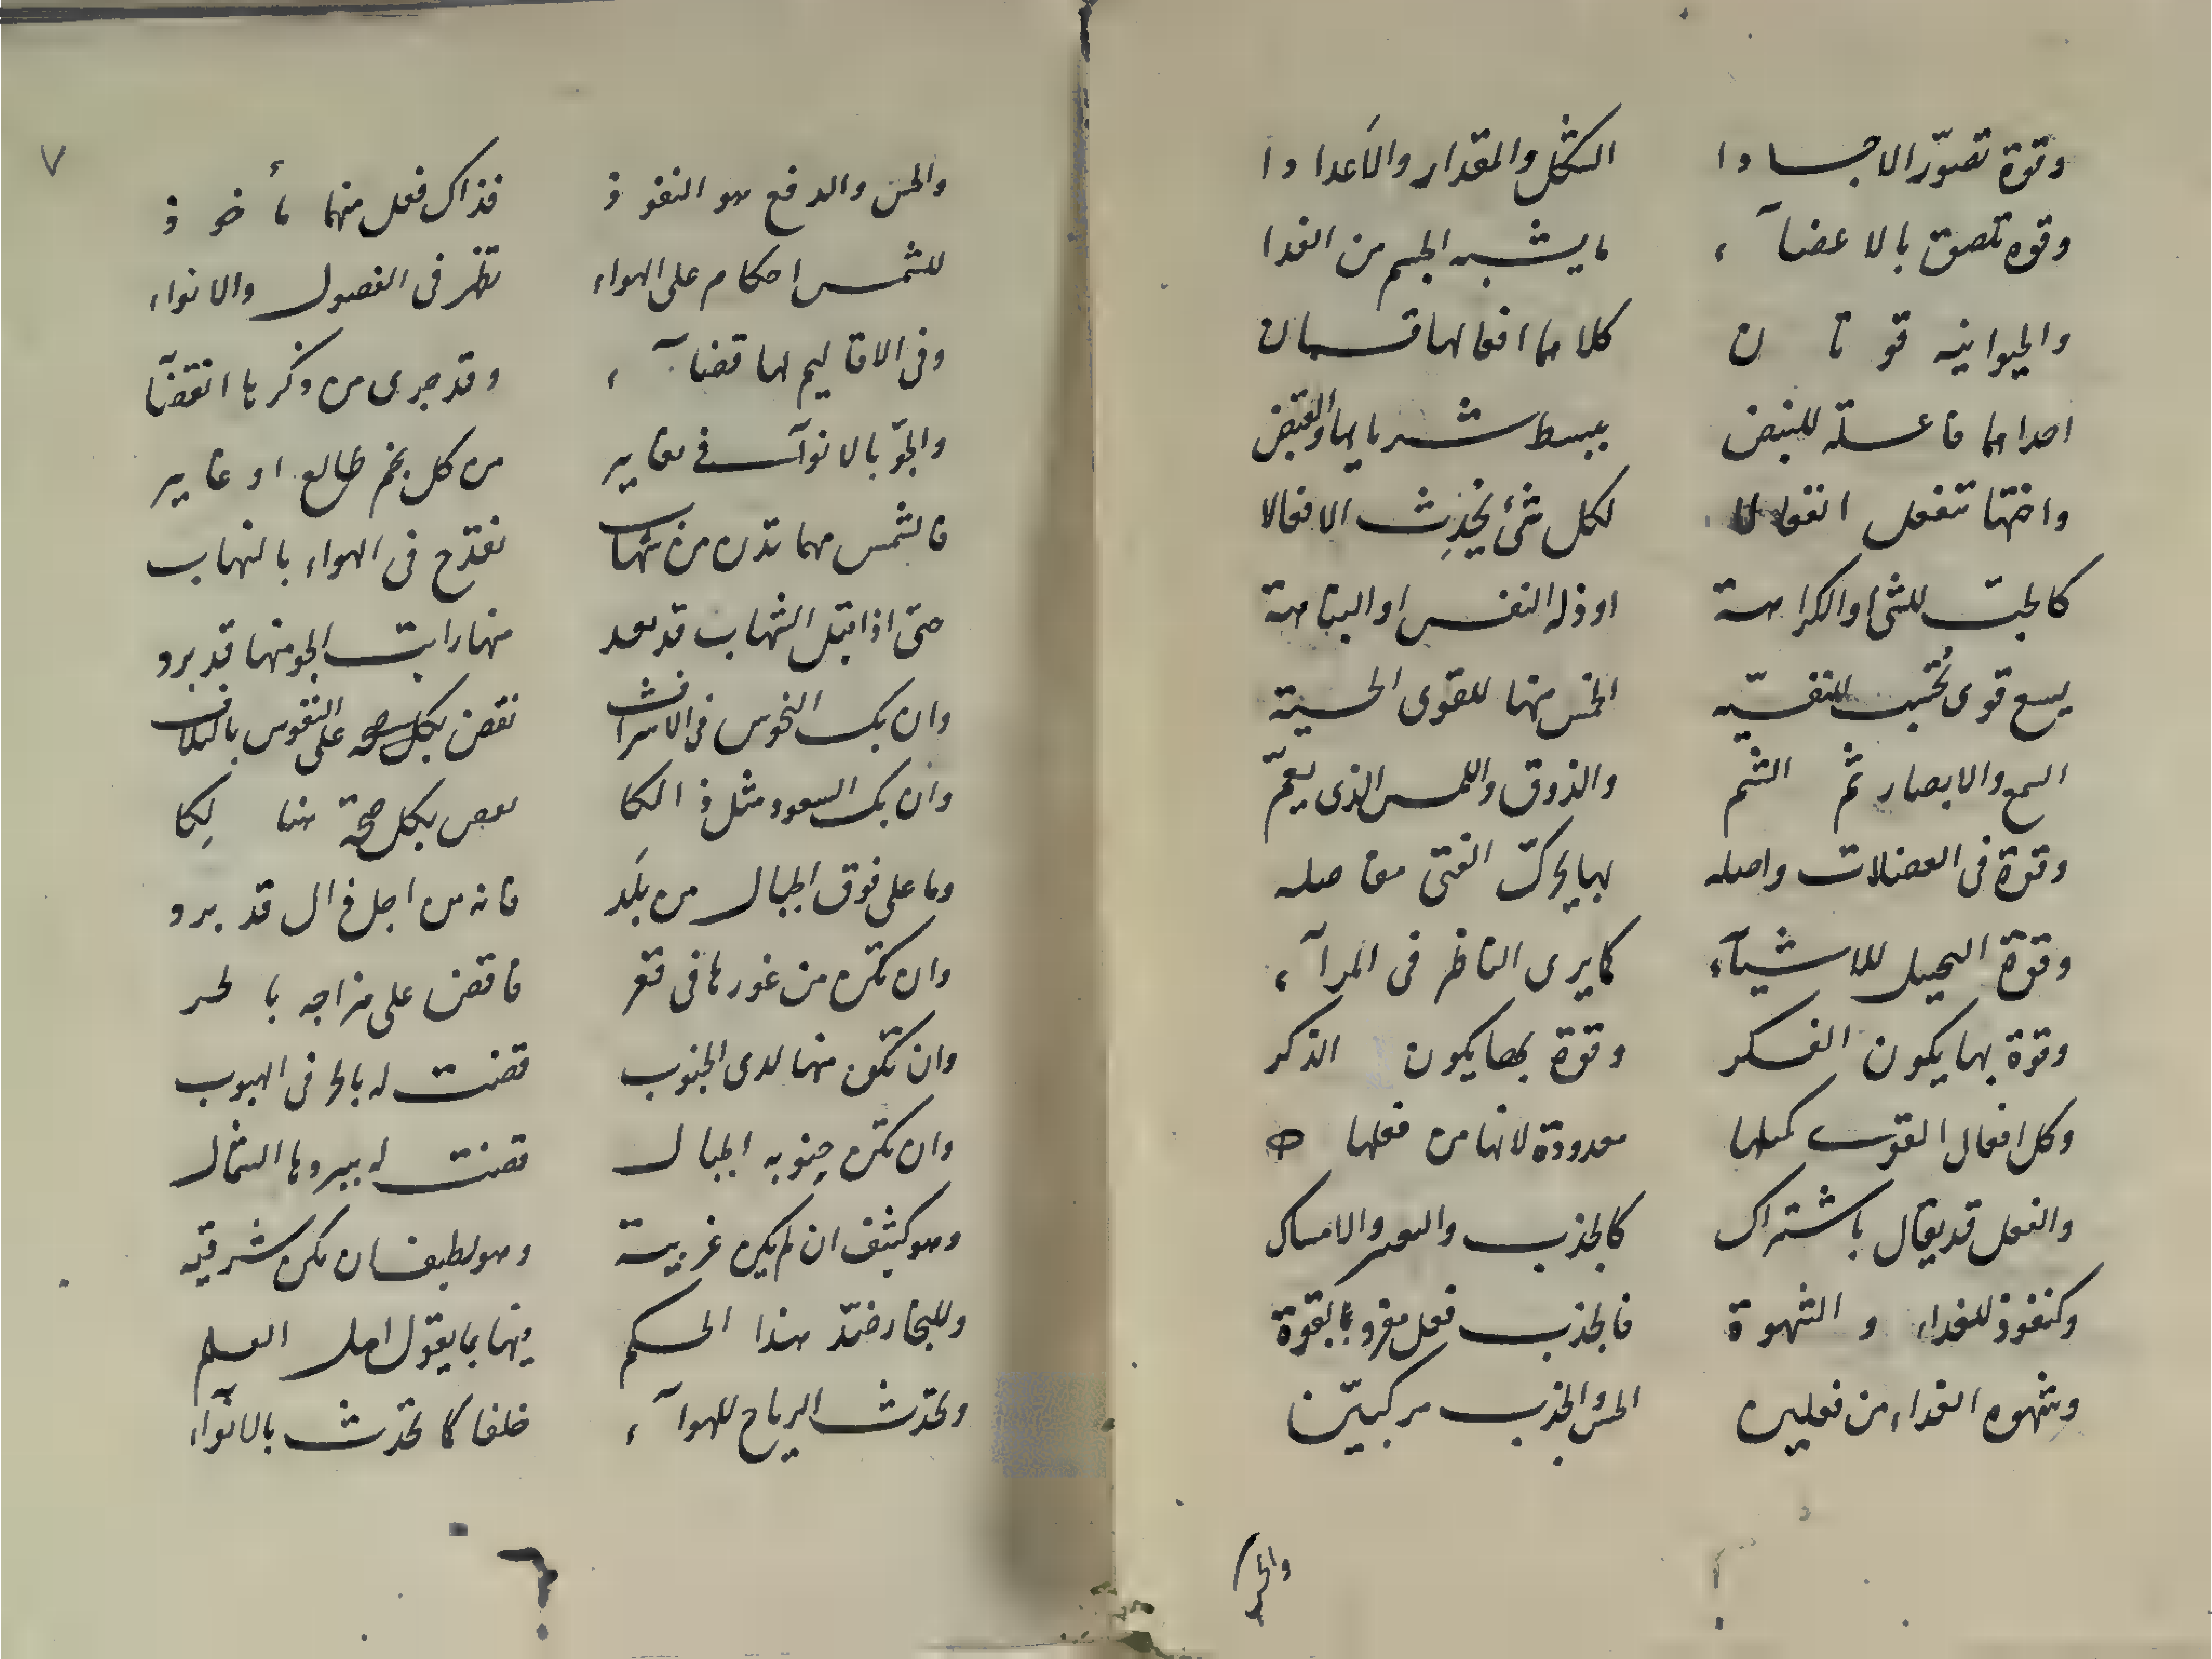 وقوة تصوّر الاجسادا الشكل والمقدار والاَعدادا
وقوه تلصق بالاعضآء ما يشبه الجسم من الغدا
والحيوانيه قوتان كلاهما افعالها قسمان
احداهما فاعلة للنبض ببسط شريانها والقبض
واختها تنفعل انفعالا لكل شئ يُحْدِث الافعالا
كالحب للشئ والكراهة او ذله النفس او النباهة
تسع قوى تُحْسَب للنفسيّه الخمس منها للقوى الحسية
السمع والابصار ثم الشم والذوق واللمس الذى يعمّ
وقوة فى العضلات واصله بها يحرك الفتى مفاصله
وقوة التخييل للاشيآء كما يرى الناظر فى المرآء
وقوة بها يكون الفكر وقوة بها يكون الذكر
وكل افعال القوى كمثلها معدودة لانها من فعلها
والفعل قد يقال باشتراك كالجذب والامساك
وكنفوذ للغداء والشهوة فالجذب فعل مفرد بالقوة
وشهوه الغداء من فعلين الحس والجذب مركبيّن
والحس
٧
والحس والدفع هو النفوذ فذاك فعل منهما مأخوذ
للشمس احكام على الهواء تظهر فى الفصول والانواء
وفى الاقاليم لها قضآء وقد جرى من ذكرها انقضآ
والجوّ بالانوآء فى تغايير من كل نجم طالع او غايير
فالشمس مهما تدن من شهاب تقدح فى الهواء بالتهاب
حتى اذا قيل الشهاب قد بعد منها رايت الجو منها قد برد
وان يك النحوس فى الاشراف نقض على النفوس بالتلاف
وان يك السعود مثل ذالكا بكل صحة هنالِكا
وما على فوق الجبال من بَلَد فانه من اجل ذا ل قد برد
وان تكن من غورها فى قعر فاقض على مزاجه بالحر
وان تكن منها لدى الجنوب قضت له بالحر فى الهبوب
وان تكن جنوبه الجبال قضت له ببردها الشمال
وهو كثيف ان لم يكن غربية وهو لطيف ان يكن شرقيه
وللبحار ضدّ هذا الحكم فيها بما يقول اهل العلم
وتحدث الرياح للهوآء خلفا كما تحدث بالانوآء